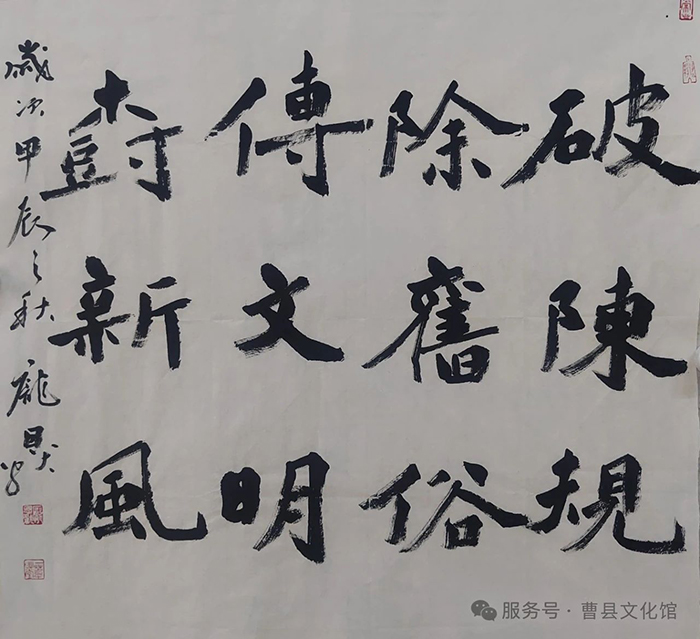 破陳規
除舊俗
傳文明
尌新風
歲次甲辰之秋龐昊書
服务号·曹县文化馆